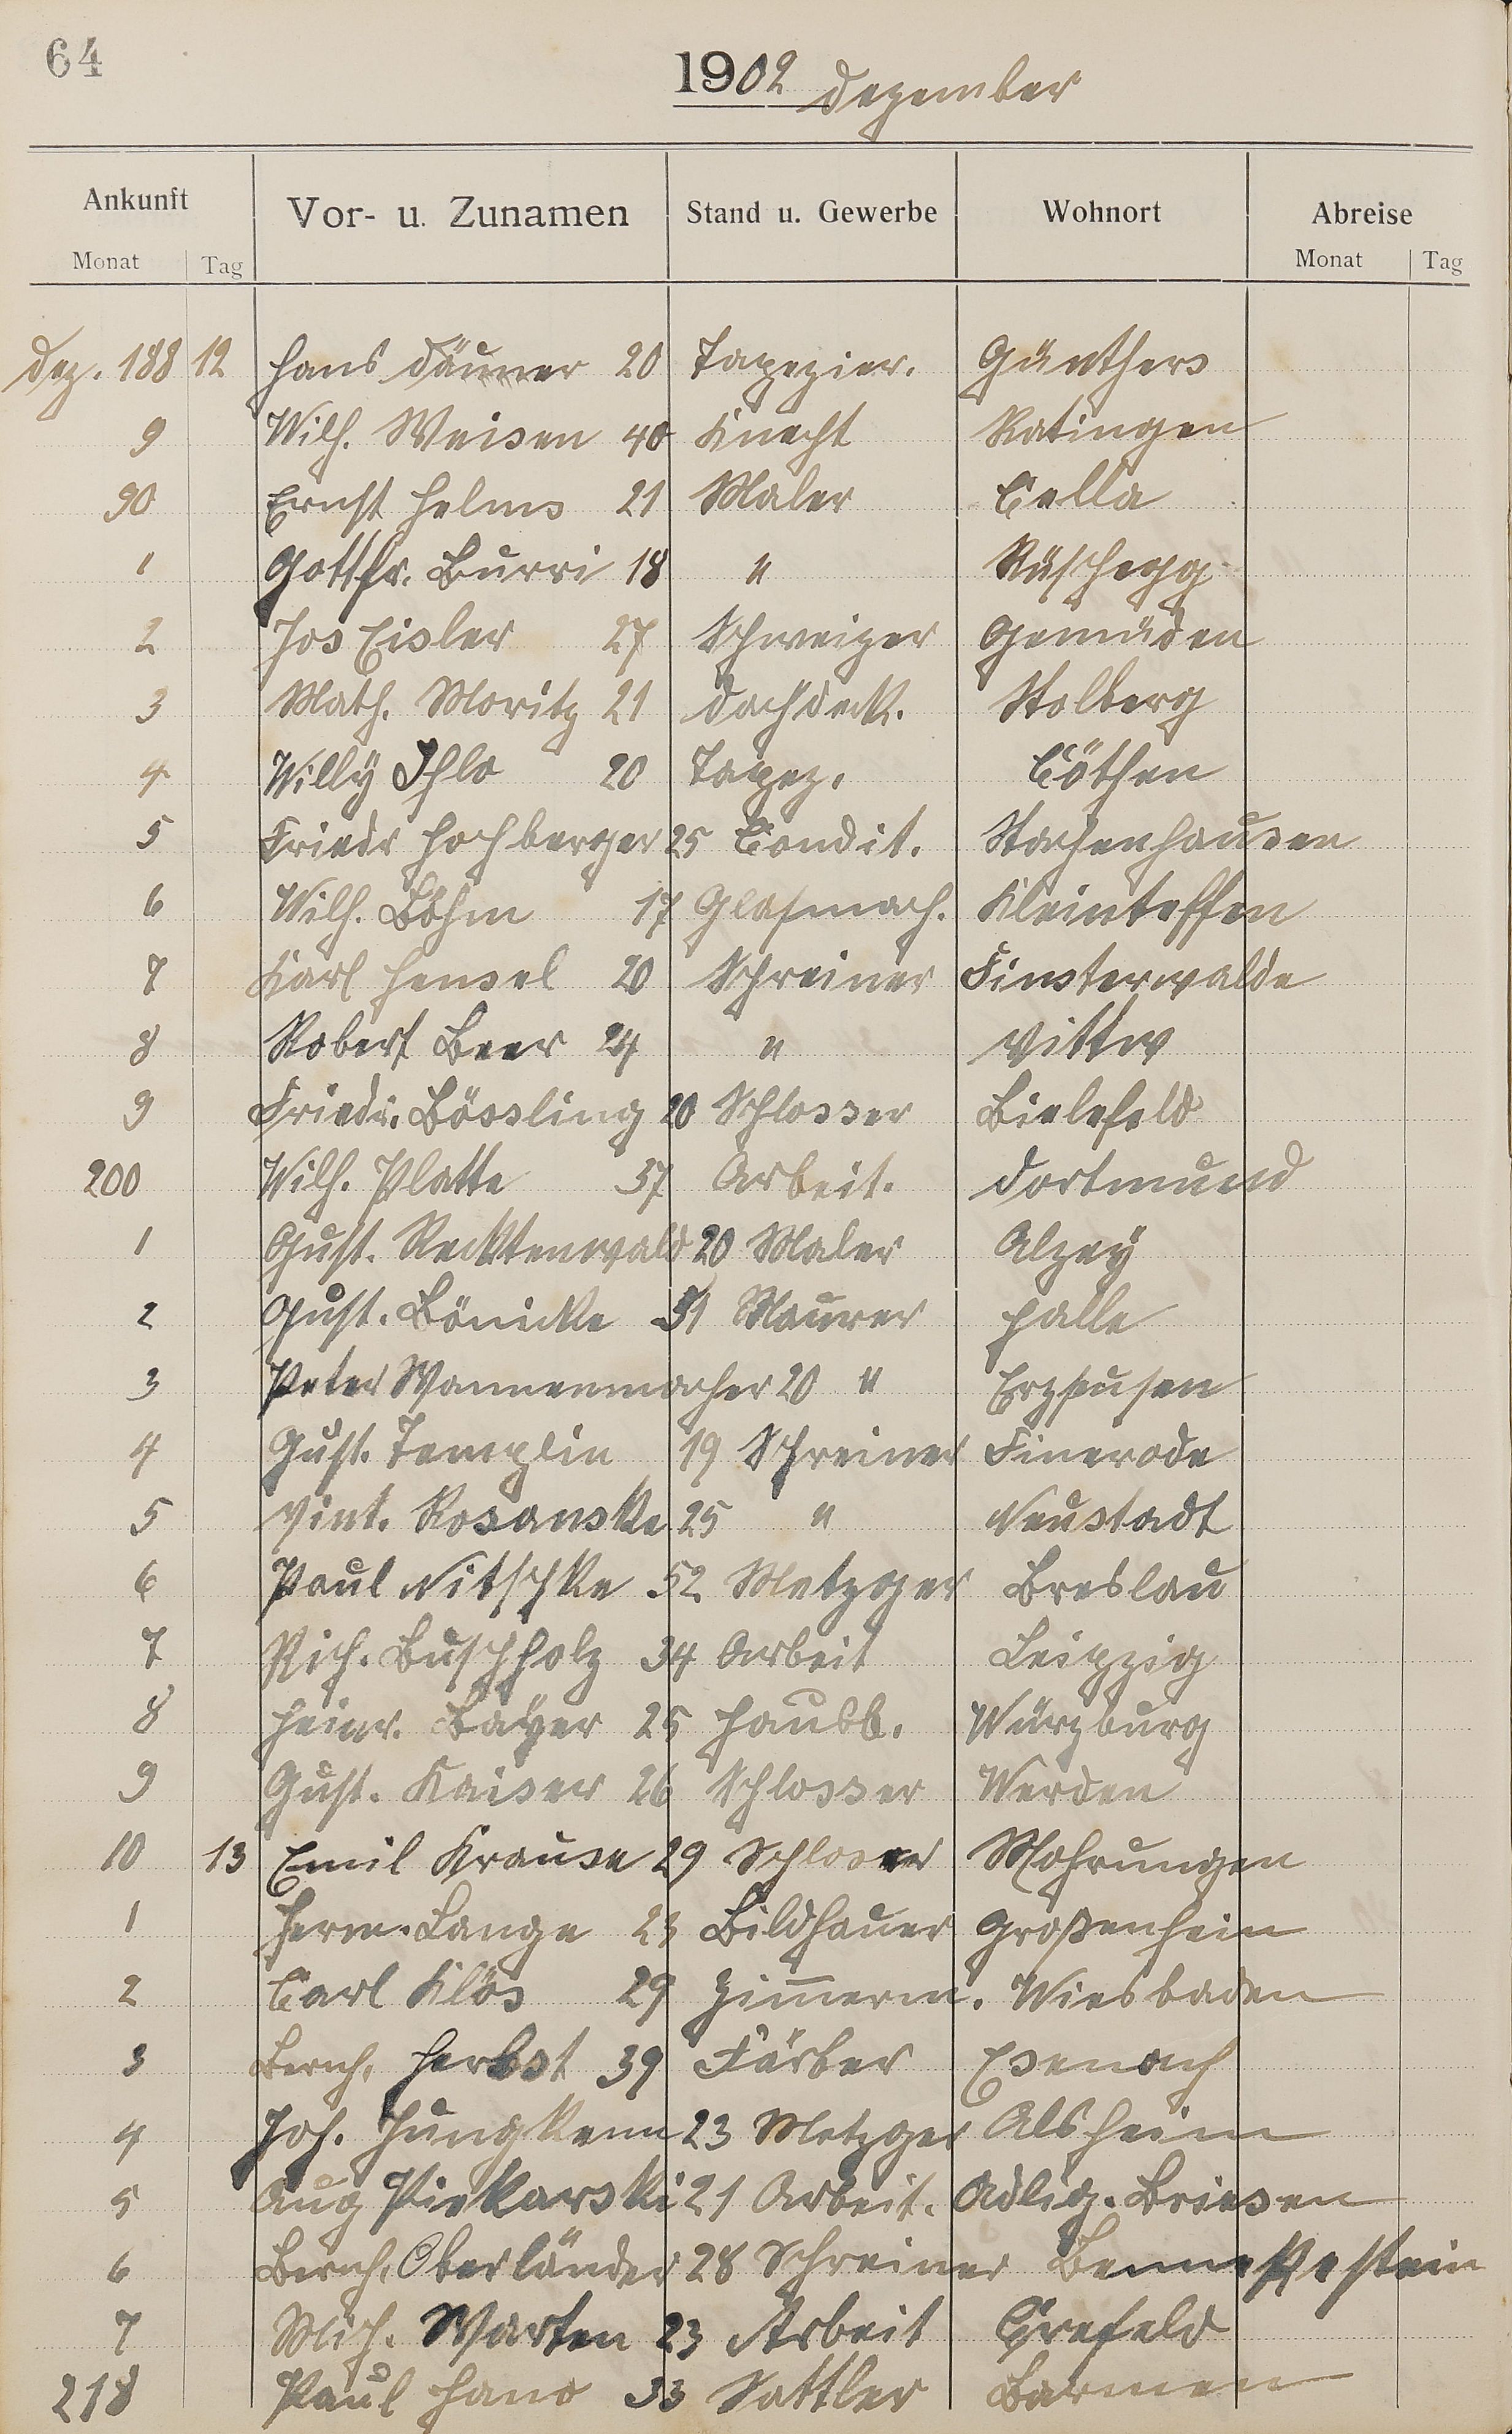 64
1902 Dezember
Ankunft Vor- u. Zunamen Stand u. Gewerbe Wohnort Abreise
Monat Tag Monat Tag
Dez. 188 12 Hans Däuner 20 Tapezier. Günthers
9 Wilh. Weisen 40 Knecht Ratingen
90 Ernst Helms 21 Maler Cella
1 Gottfr. Burri 18 " Rüschegg
2 Jos Eisler 27 Schweizer Gemünden
3 Math. Moritz 21 Dachdeck. Stolberg
4 Willy Ihlo 20 Tapez. Cöthen
5 Friedr Hochberger 25 Condit.
6 Wilh. Böhm 17 Glasmach.
7 Karl Hensel 20 Schreiner Finsterwalde
8 Robert Beer 24 "
9 Friedr. Bössling 20 Schlosser Bielefeld
200 Wilh. Platte 57 Arbeit. Dortmund
1 Gust. Recktenwald 20 Maler Alzey
2 Gust. Bönicke 31 Maurer Halle
3 Peter Wannenmacher 20 " Erzhausen
4 Gust. Templin 19 Schreiner Finerode
5 Vint. Rosanske 25 " Neustadt
6 Paul Nitschke 52 Metzger Breslau
7 Rich. Buschholz 34 Arbeit Leipzig
8 Heinr. Bayer 25 Hausb. Würzburg
9 Gust. Kaiser 26 Schlosser Werden
10 13 Emil Krause 29 Schlosser Mohrungen
1 Herm. Lange 23 Bildhauer Großenhein
2 Carl Klös 29 Zimmerm. Wiesbaden
3 Bernh. Herbst 39 Färber Esenach
4 Joh. Jungkenn 23 Metzger Alsheim
5 Aug Piekarski 21 Arbeit. Adlig. Briesen
6 Bernh. Oberländer 28 Schreiner
7 Mich. Warten 23 Arbeit Crefeld
218 Paul Hano 33 Sattler Barmen